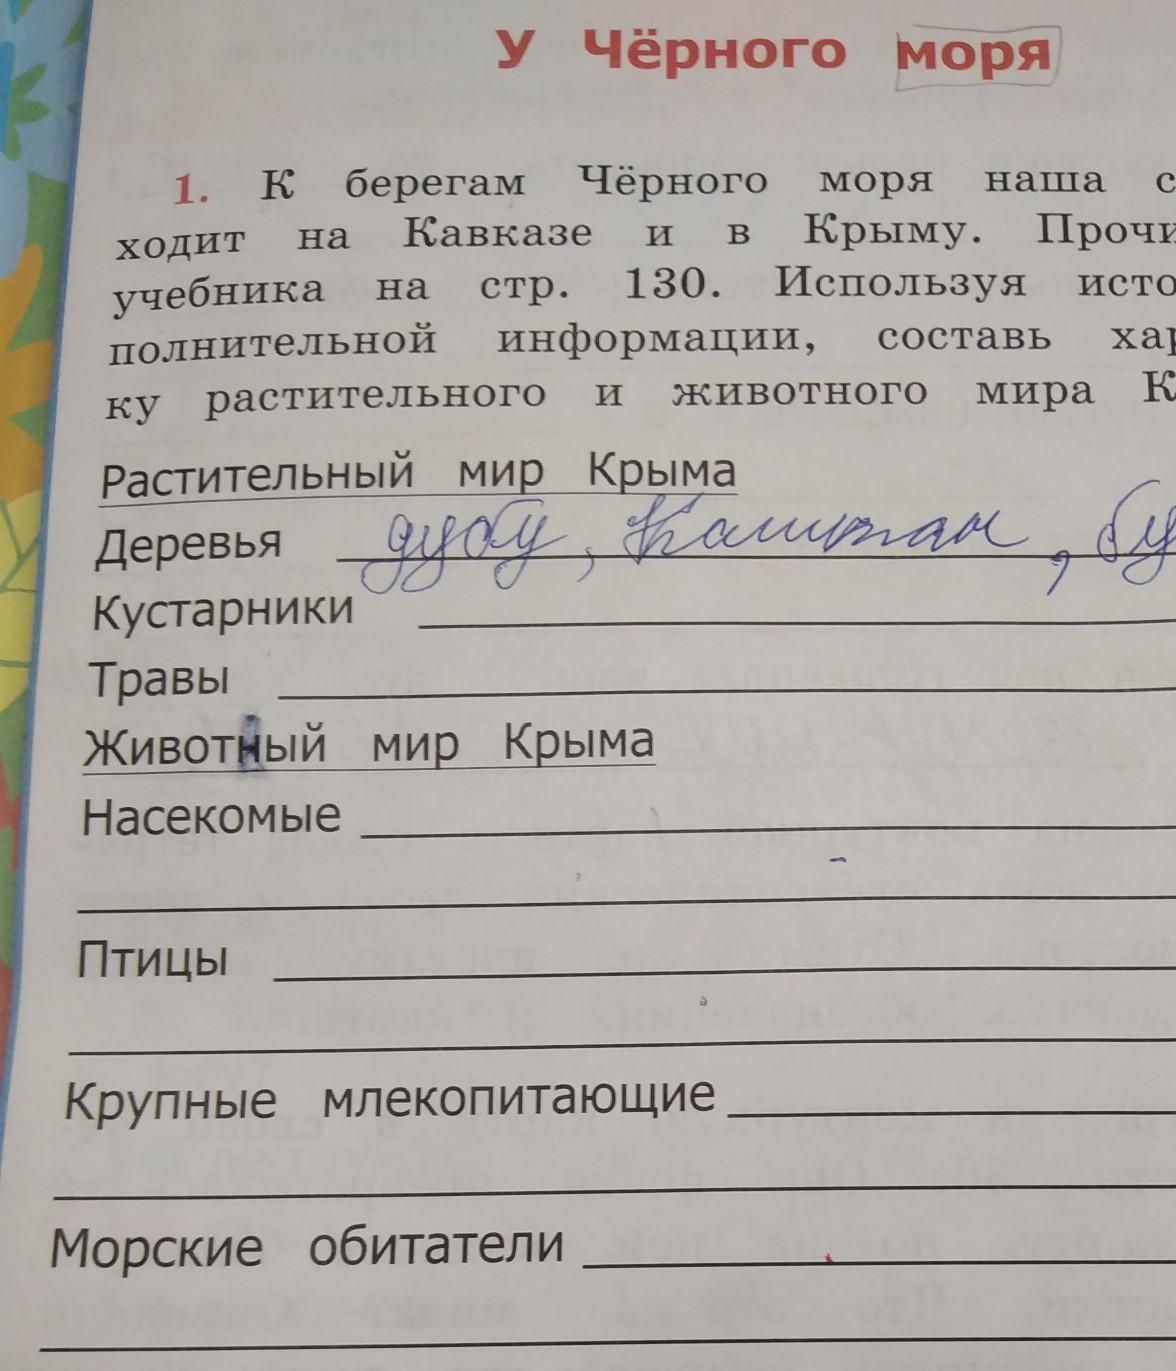 У Чёрного моря
1. К берегам Чёрного моря наша с
ходит на Кавказе и в Крыму. Прочи
учебника на стр. 130. Используя исто
полнительной информации, составь хар
ку растительного и животного мира К
Растительный мир Крыма
Деревья дубу, Каштан, бу
Кустарники
Травы
Животный мир Крыма
Насекомые
Птицы
Крупные млекопитающие
Морские обитатели